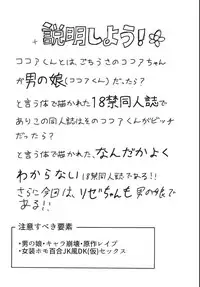 説明しよう!
ココアくんとは、ごちうさのココアちゃん
が男の娘(ココアくん)だったら?
と言う体で描かれた18禁同人誌で
ありこの同人誌はそのココアくんがビッチ
だったら?
と言う体で描かれた、なんだかよく
わからない18禁同人誌である!!
さらに今回は、リゼちゃんも男の娘で
ある!!
注意すべき要素
・男の娘・キャラ崩壊・原作レイプ
・女装ホモ百合JK風DK(仮)セックス